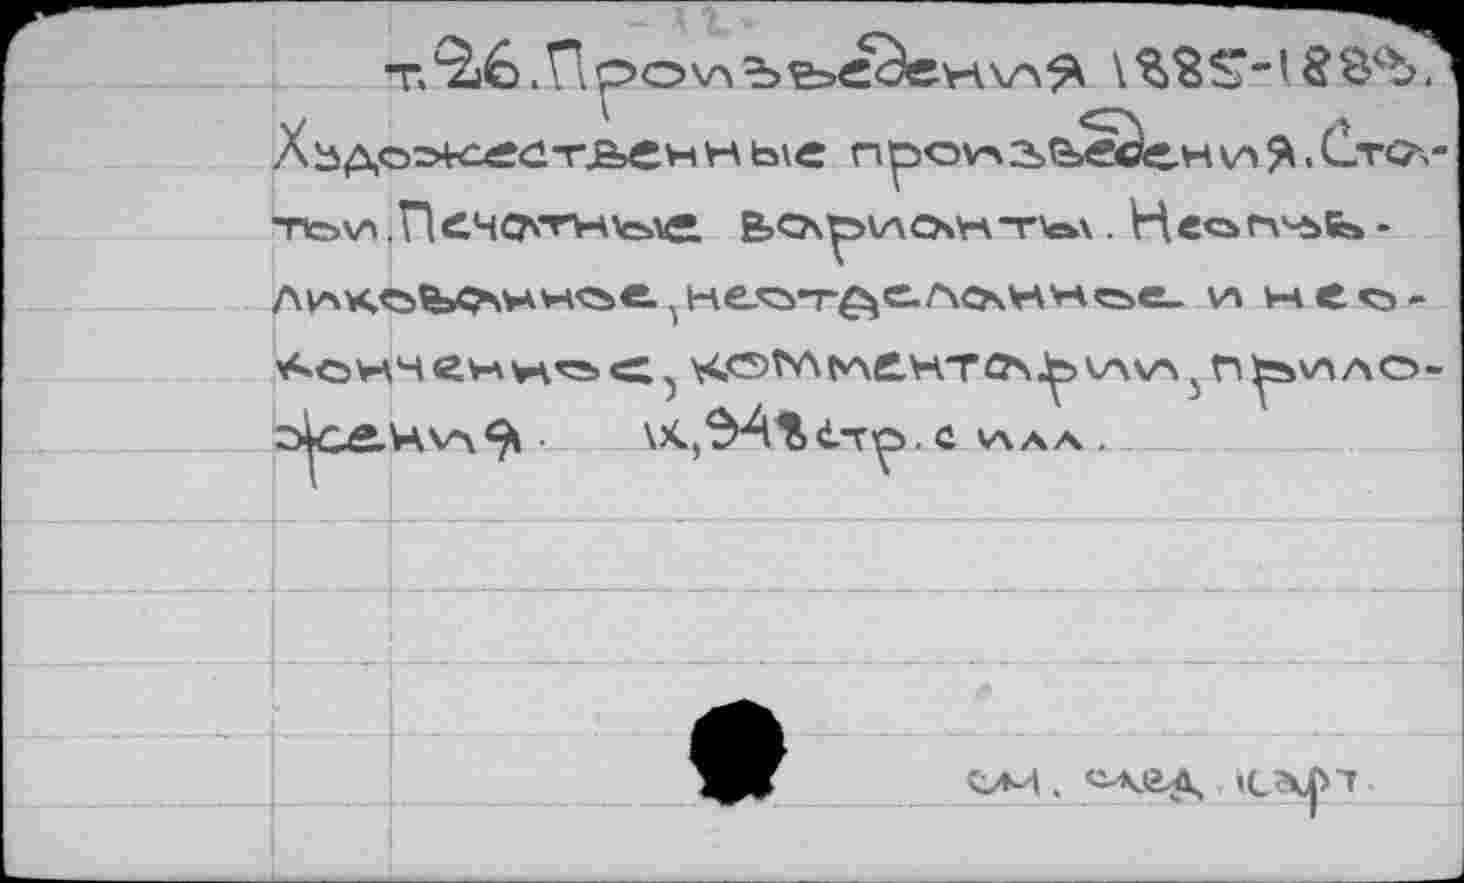 - 12 -
т.26. Произведения 1885-1889.
Художественные произведения. Ста-
тьи. Печатные варианты. Неопуб-
ликованное, неотделанное и нео-
конченное, комментарии, прило-
жения. IX, 948 стр. с илл.
см. след. карт